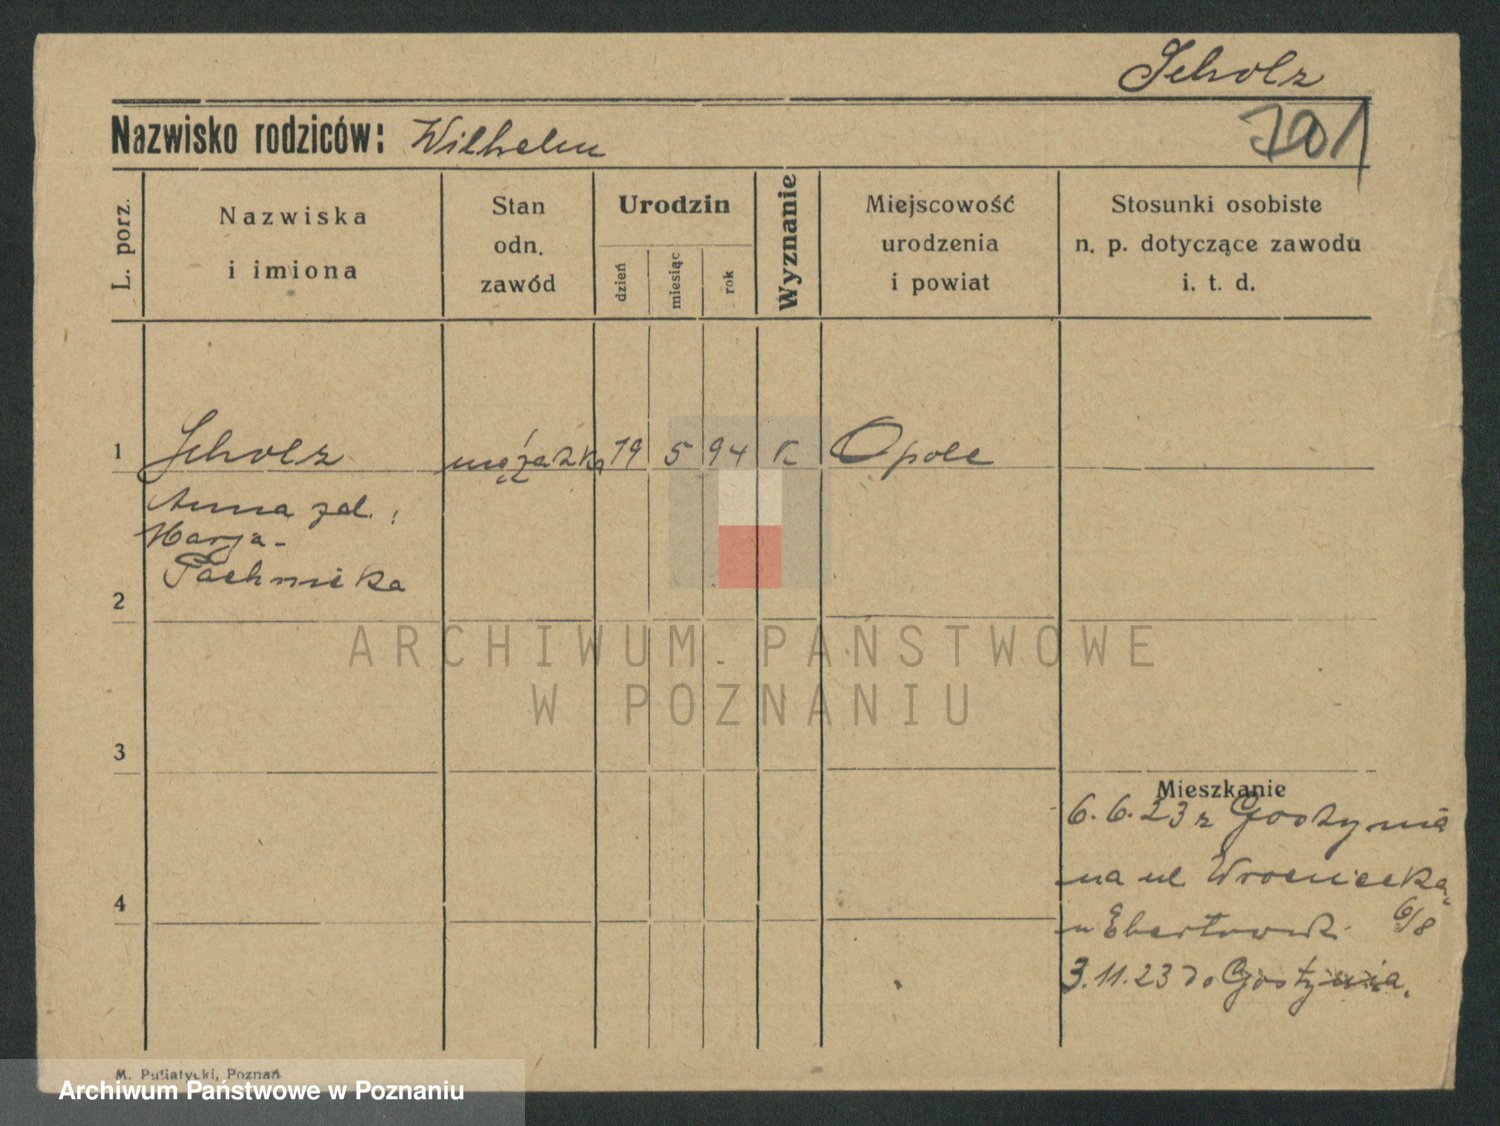 Scholz
Nazwisko rodziców: Wilhelm
701
L. porz.
Nazwiska
i imiona
Stan
odn.
zawód
Urodzin
dzień
miesiąc
rok
Wyznanie
Miejscowość
urodzenia
i powiat
Stosunki osobiste
n. p. dotyczące zawodu
i. t. d.
1 Scholz mężatka 19 5 94 k Opole
Anna zd.:
Marja-
Pachnicka
2
3
4
Mieszkanie
6.6.23 z Gostynia
na ul. Wroniecka
u 6/8
3.11.23 do Gostynia.
ARCHIWUM PAŃSTWOWE
W POZNANIU
M. Putiatycki, Poznań
Archiwum Państwowe w Poznaniu